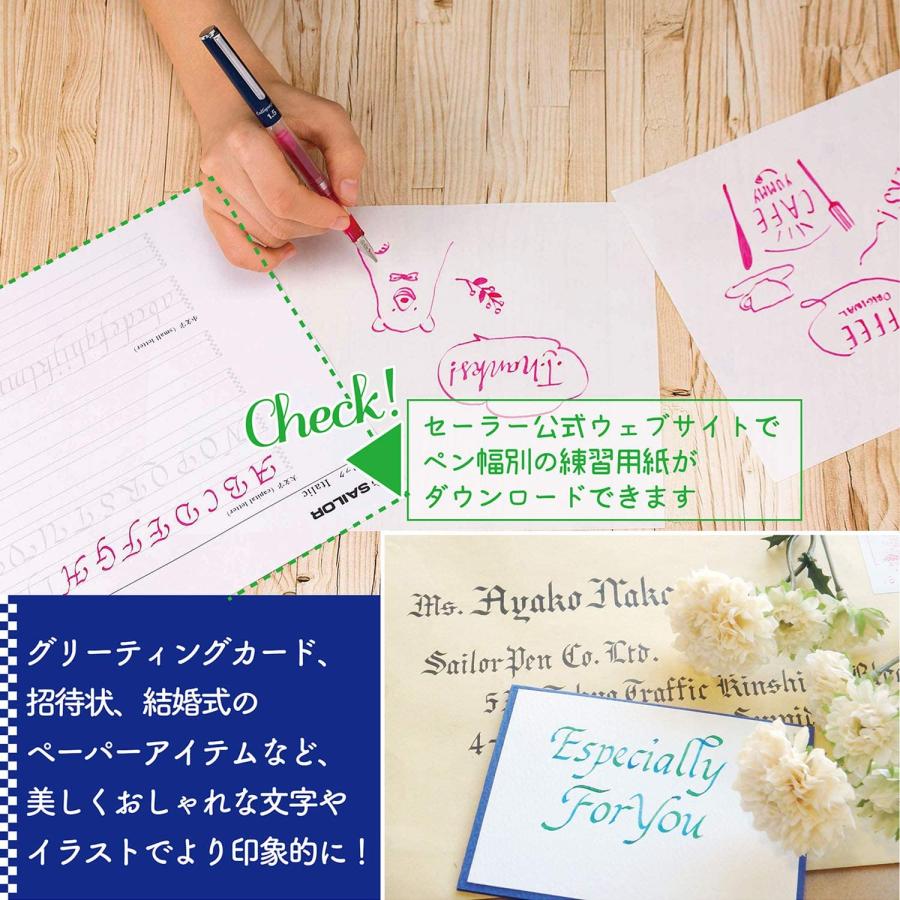 1.5
CAFE
YUMMY
ORIGINAL
小文字 (small letter)
abcdefghijklm
Thanks!
Check!
セーラー公式ウェブサイトで
ペン幅別の練習用紙が
ダウンロードできます
N O P Q R S
大文字 (capital letter)
A B C D E F G H
Italic
SAILOR
グリーティングカード、
招待状、結婚式の
ペーパーアイテムなど、
美しくおしゃれな文字や
イラストでより印象的に!
Ms. Ayako
Sailor Pen Co. Ltd.
Traffic Kinshi
4-
Especially
For You